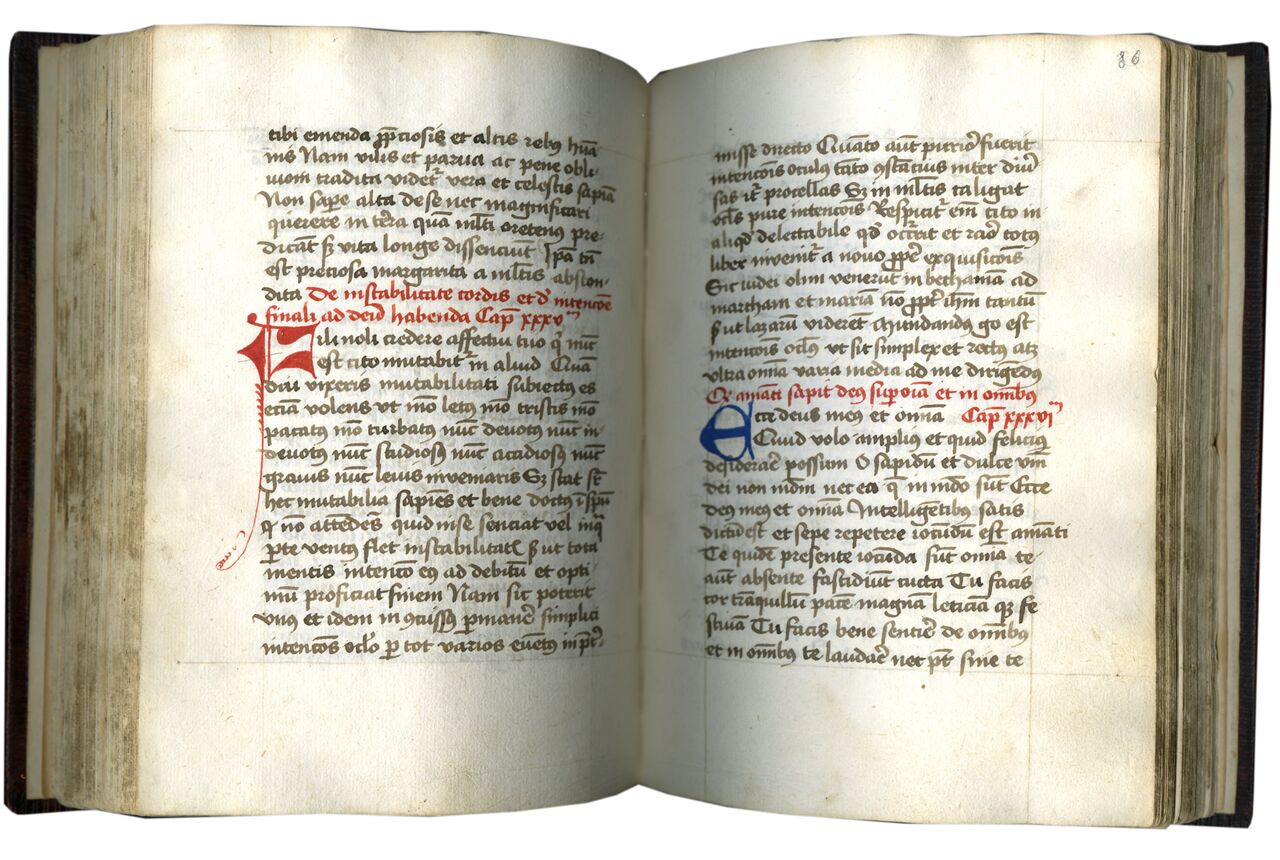 tibi emenda p̄ciosis et altis rebꝰ hūa
nis Nam vilis et parua ac pene obli
uioni tradita videt᷑ vera et celestis sapiā
Non sapere alta de se nec magnificari
querere in terra quā ml̄ti oretenꝰ pre
dicāt sꝫ vita longe dissenciūt Ip̄a tn̄
est preciosa margarita a ml̄tis abscon
dita De instabilitate cordis et d̄ intencōe
finali ad deū habenda Cap̄ xxxv
Fili noli credere affectui tuo q̄ nūc
est cito mutabit᷑ in aliud Quā
diu vixeris mutabilitati subiectꝰ es
eciā volens vt mō letꝰ mō tristis mō
pacatꝰ mō turbatꝰ nūc deuotꝰ nūc in
deuotꝰ nūc studiosꝰ nūc accidiosꝰ nūc
grauis nūc leuis inveniaris Sꝫ stat sr̄
hec mutabilia sapiēs et bene doctꝰ ī sp̄u
nō attēdēs quid in se senciat vel in q̄
ꝑte ventꝰ flet instabilitatꝭ sꝫ vt tota
mentis intencō eiꝰ ad debitū et opti
mū proficiat finem Nam sic poterit
vnꝰ et idem inꝯcussꝰ ꝑmaner̄ simplici
intencōis oclō ꝑ tot varios euētꝰ in
misse directo Quāto aūt purior̄ fuerit
intencōis oculus tāto ꝯstācius inter diū
sas it᷑ procellas Sꝫ in ml̄tis caligat
oclꝰs pure intencōis Respicit᷑ em̄ cito in
aliqd̄ delectabile qd̄ occ̄rrit et raro totꝰ
liber invenit᷑ a novo propr̄ exquisicōis
Sic iudei olim venerūt in bethaniā ad
martham et mariā nō propt̄ ihm̄ tantū
sꝫ ut lazarū viderēt Mundandꝰ g̊ est
intencōis oclꝰs vt sit simplex et rectꝰ atꝫ
vltra oīna varia media ad me dirigēdꝰ
Qꝫ amāti sapit deꝰ suꝑ oīa et in omnibꝰ
Ecce deus meꝰ et om̄ia Cap̄ xxxvi
Quid volo ampliꝰ et quid feliciꝰ
desiderar̄ possum O sapidū et dulce v̄bū
dei non mūdū nec ea q̄ in mūdo sūt Ecce
deꝰ meꝰ et om̄ia Intelligētibꝰ satis
dictū est et sepe repetere iocūdū est amāti
Te quidē presente iocūda sūt om̄ia te
aūt absente fastidiūt cūcta Tu facis
cor trāquillū pacē magnā leticiā qꝫ fe
stiuā Tu facis bene sentir̄ de omībꝰ
et in omībꝰ te laudar̄ nec pt̄ sine te
86